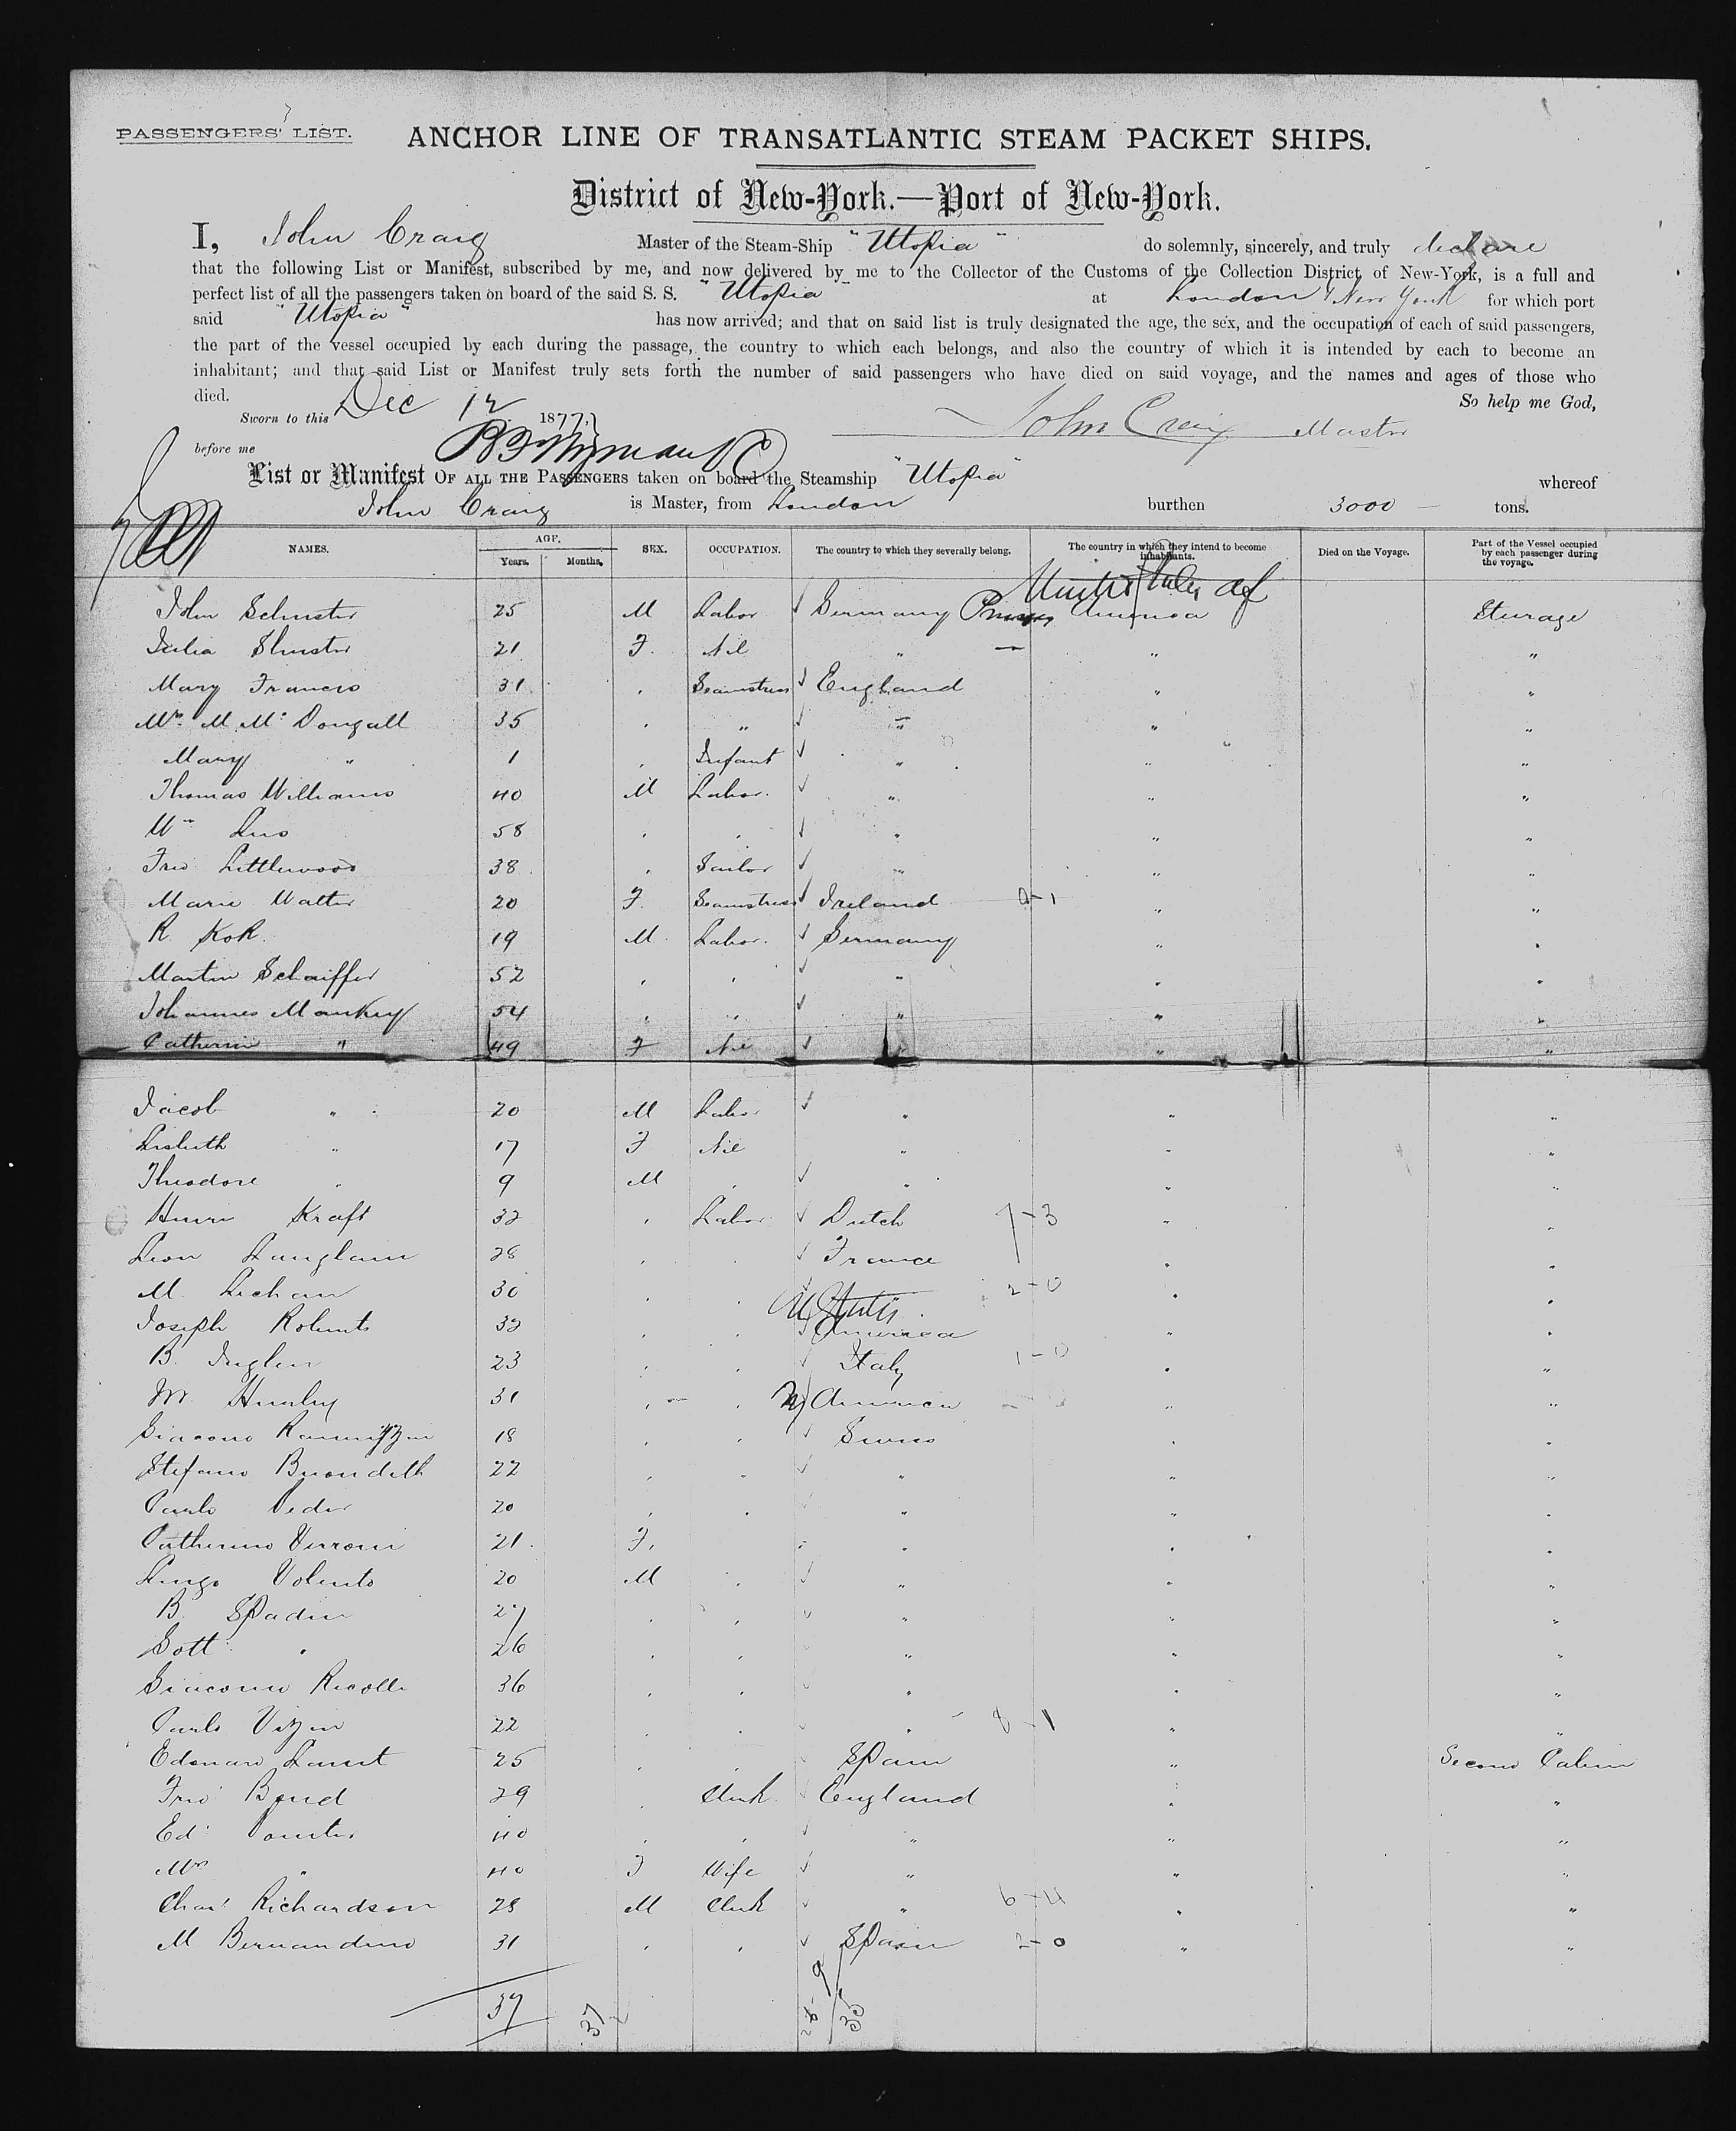 PASSENGERS' LIST.
ANCHOR LINE OF TRANSATLANTIC STEAM PACKET SHIPS.
District of New-York.—Port of New-York.
I, John Craig Master of the Steam-Ship "Utopia" do solemnly, sincerely, and truly declare
that the following List or Manifest, subscribed by me, and now delivered by me to the Collector of the Customs of the Collection District of New-York, is a full and
perfect list of all the passengers taken on board of the said S. S. "Utopia" at London & New York for which port
said "Utopia" has now arrived; and that on said list is truly designated the age, the sex, and the occupation of each of said passengers,
the part of the vessel occupied by each during the passage, the country to which each belongs, and also the country of which it is intended by each to become an
inhabitant; and that said List or Manifest truly sets forth the number of said passengers who have died on said voyage, and the names and ages of those who
died. So help me God,
Sworn to this Dec 12 1877
John Craig Master
before me
List or Manifest OF ALL THE PASSENGERS taken on board the Steamship "Utopia" whereof
John Craig is Master, from London burthen 3000 tons.
NAMES. AGE. Years. Months. SEX. OCCUPATION. The country to which they severally belong. The country in which they intend to become inhabitants. Died on the Voyage. Part of the Vessel occupied by each passenger during the voyage.
United States of
John Schuster 25 M Labor Germany America Steurage
Julia Shuster 21 F. Nil " " "
Mary Francis 31 " Seamstress England " "
Mrs M McDougall 35 " " " " "
Mary " 1 " Infant " " "
Thomas Williams 40 M Labor " " "
Wm 58 " " " " "
Fred Littlewood 38 " Sailor " " "
Marie Walter 20 F. Seamstress Ireland 0-1 " "
R. Kok 19 M Labor. Germany " "
Martin Schaiffer 52 " " " " "
Johannes 54 " " " " "
Catherine " 49 F Nil " " "
Jacob " 20 M Labor " " "
" 17 F Nil " " "
Theodore " 9 M " " " "
Henri Kraft 32 " Labor Dutch 7-3 " "
Leon Langlain 28 " " France " "
M. 30 " " 2-0 " "
U States
Joseph Roberts 32 " " America " "
B. 23 " " Italy 1-0 " "
M. 31 " " America " "
Giacomo 18 " " Swiss " "
Stefano 22 " " " " "
Carlo 20 " " " " "
Catherine 21 F. " " "
20 M " " " "
B. Spadin 27 " " " " "
Gott " 26 " " " " "
Giacomo 36 " " " " "
Carlo 22 " " " 8-1 " "
Edouard 25 " " Spain " Second Cabin
Fred Bond 29 " Clerk England " "
Ed. 40 " " " " "
Mrs " 40 F Wife " " "
Chas Richardson 28 M Clerk " 6-4 " "
M Bernandino 31 " " Spain 2-0 " "
37 37 28-9 35